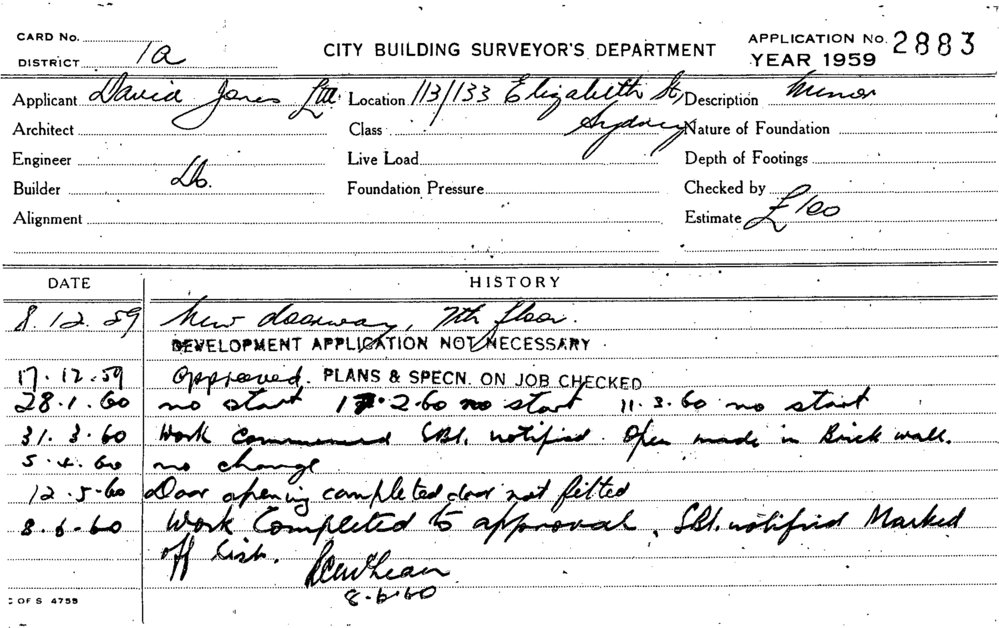 CARD No.
DISTRICT 1a
CITY BUILDING SURVEYOR'S DEPARTMENT
APPLICATION No. 2883
YEAR 1959
Applicant David Jones Ltd. Location 113/133 Elizabeth St, Description Minor
Architect Class Sydney Nature of Foundation
Engineer Live Load Depth of Footings
Builder Do. Foundation Pressure Checked by
Alignment Estimate £100
DATE HISTORY
8.12.59 New doorway, 7th floor.
DEVELOPMENT APPLICATION NOT NECESSARY
17.12.59 Approved. PLANS & SPECN. ON JOB CHECKED
28.1.60 no start 17.2.60 no start 11.3.60 no start
31.3.60 Work commenced SBI. notified. Open made in Brick wall.
5.4.60 no change
12.5.60 Door opening completed door not fitted
8.6.60 Work Completed to approval, SBI. notified Marked
off list.
8.6.60
C OF S 4755